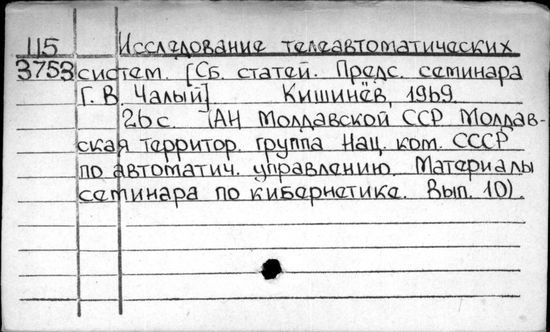 115 Исследование телеавтоматических
3753 систем. [Сб. статей. Предс. семинара
Г. В. Чалый] Кишинёв, 1969.
26 с. (АН Молдавской ССР Молдав-
ская территор. группа Нац. ком. СССР
по автоматич. управлению. Материалы
семинара по кибернетике. Вып. 10).